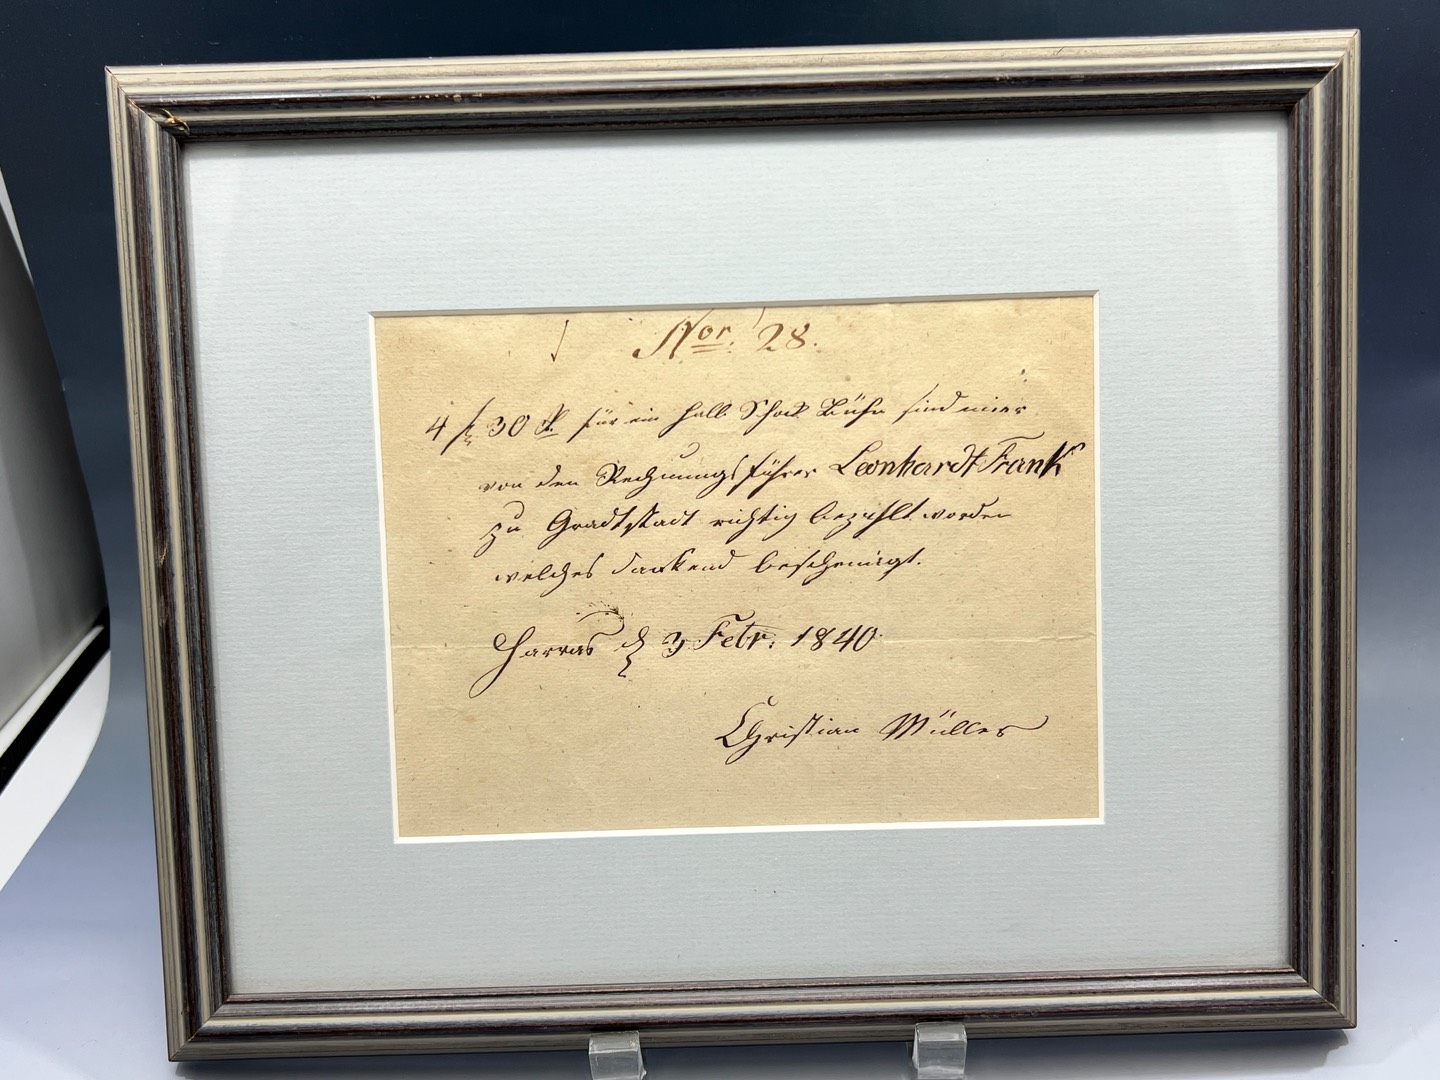 Nor. 28.
4 f 30 x für ein halb Schock Büsch sind mir
von den Rechnungsführer Leonhardt Frank
zu Gradtstadt richtig bezahlt worden
welches dankend bescheinigt.
Harras d 3 Febr: 1840
Christian Müller